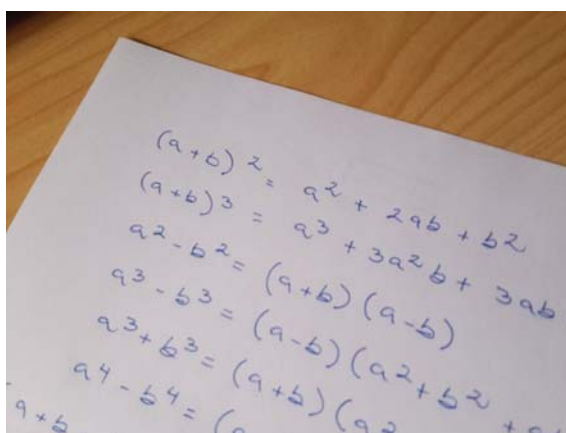 (a+b)² = a² + 2ab + b²
(a+b)³ = a³ + 3a²b + 3ab
a² - b² = (a+b) (a-b)
a³ - b³ = (a-b) (a² + b² + a
a³ + b³ = (a+b) (a²
a⁴ - b⁴ = (a
a+b